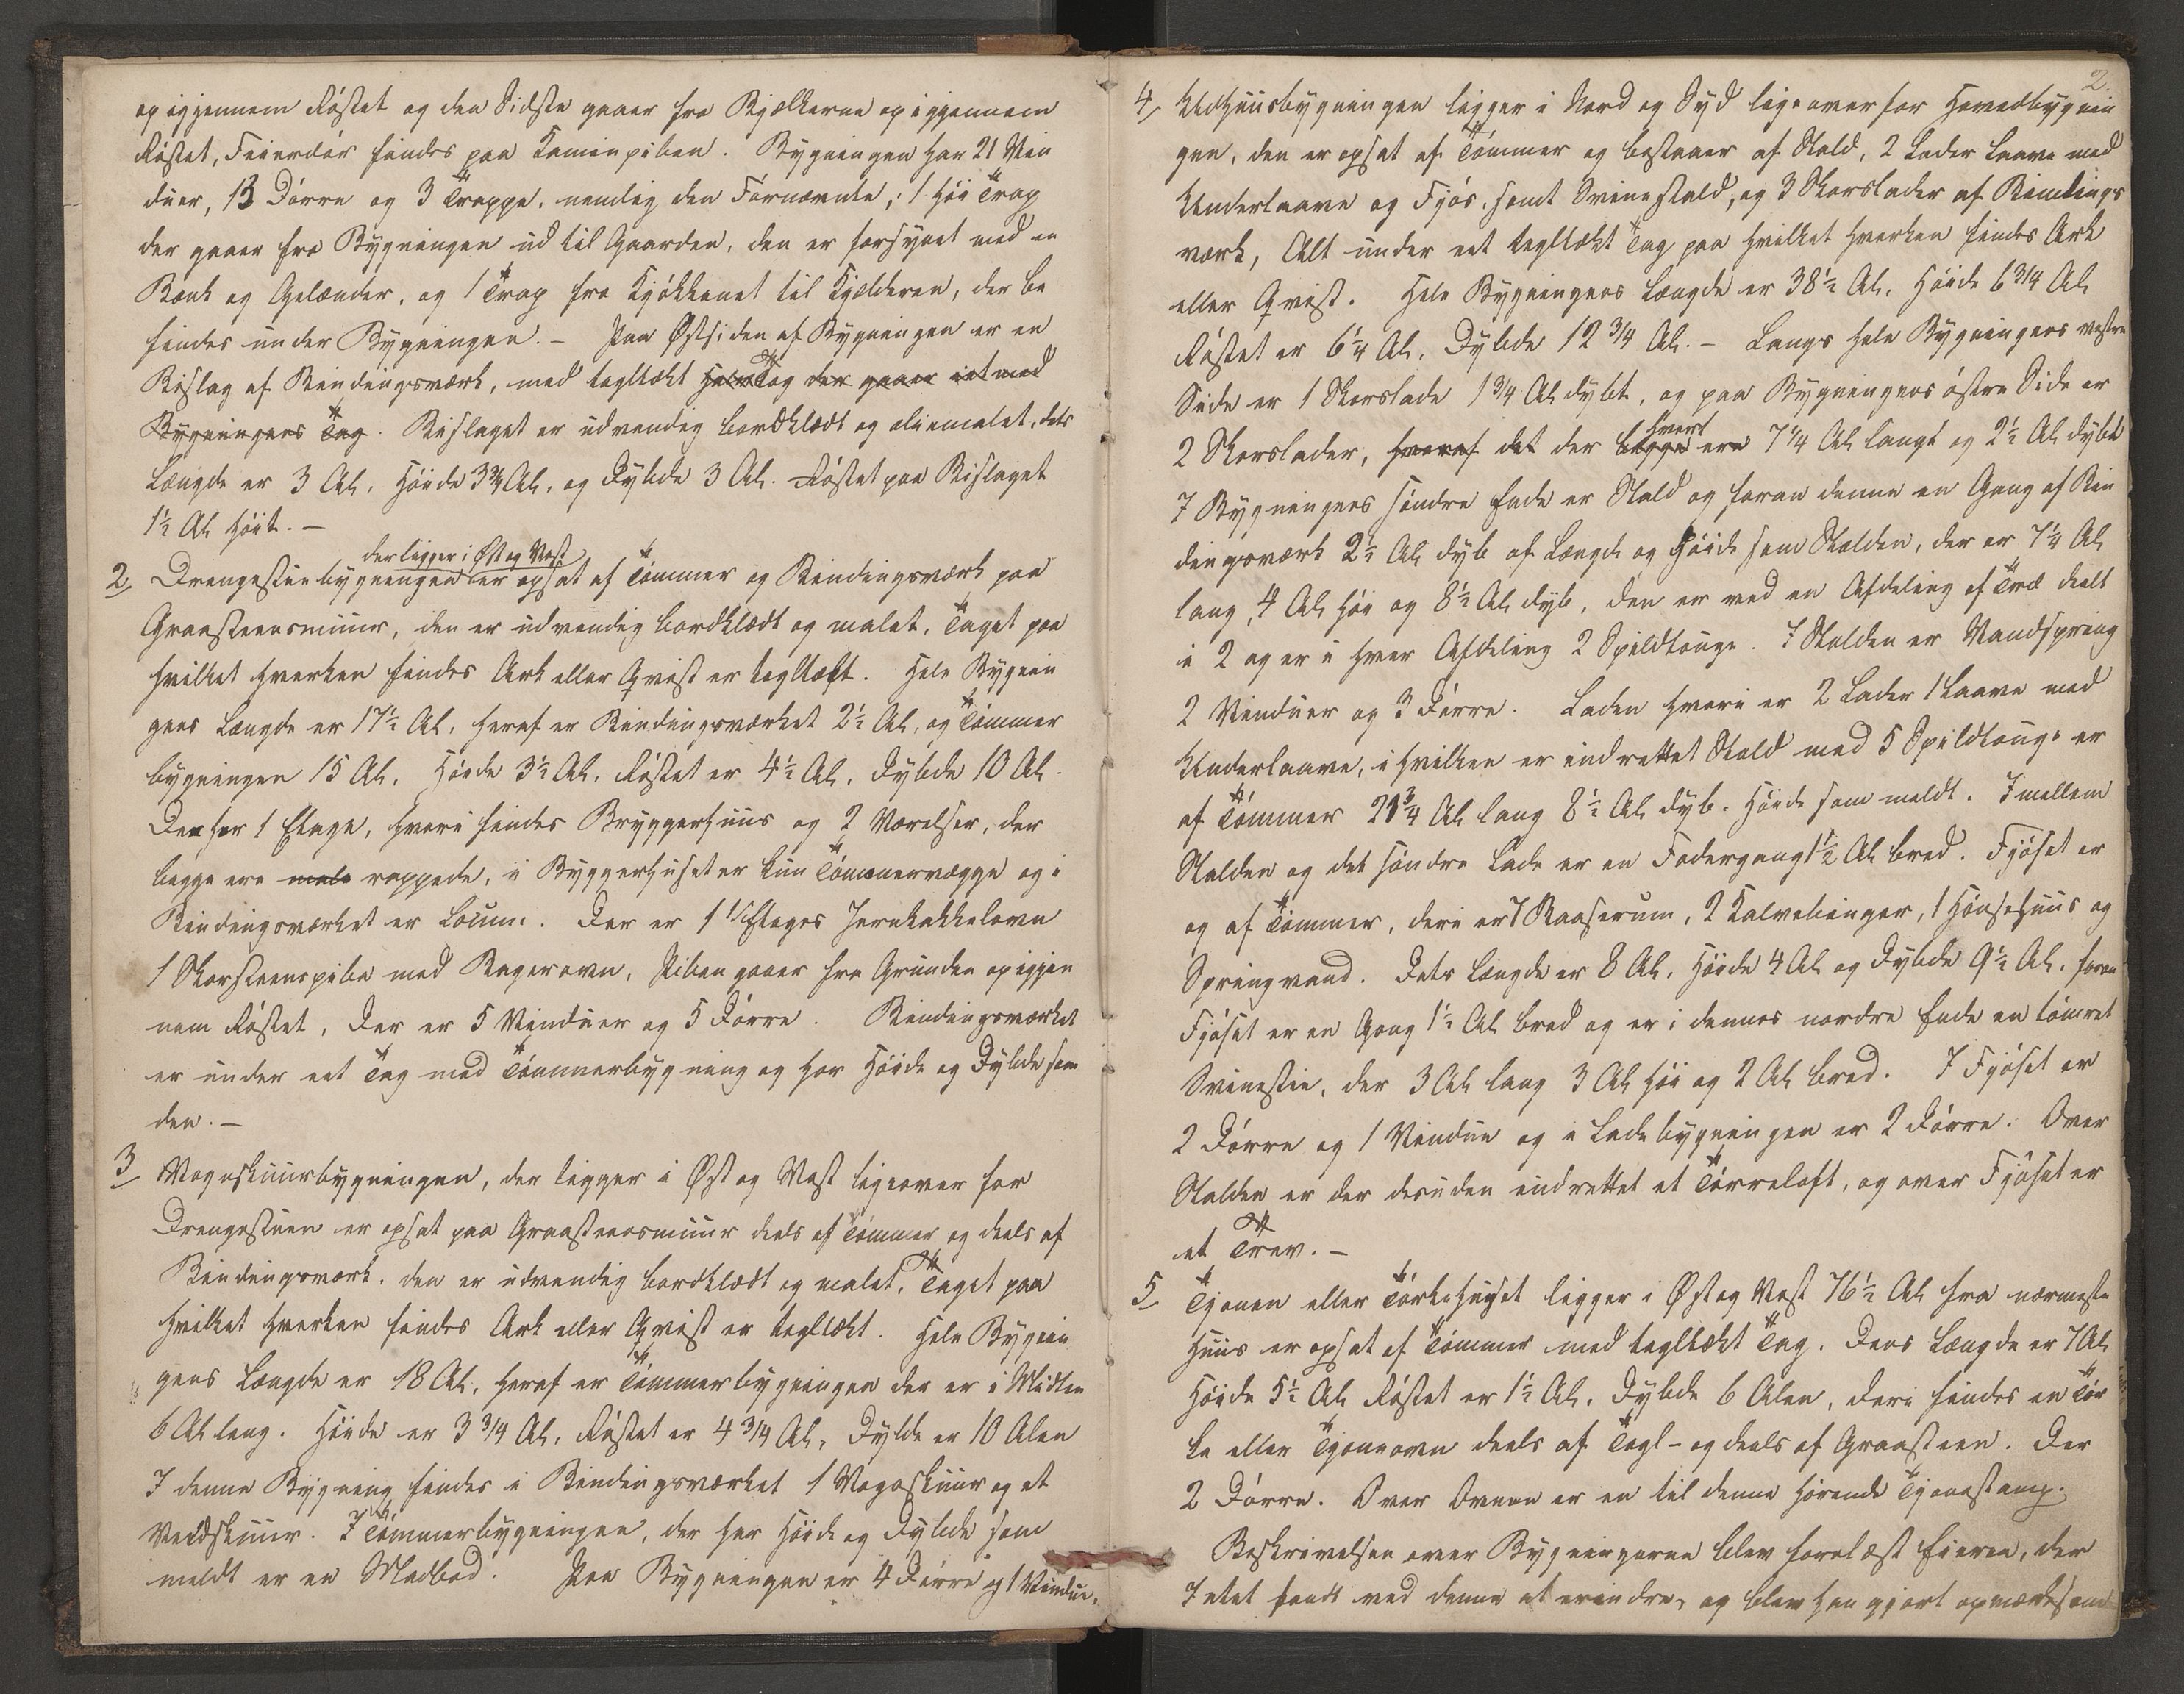 op igjennem Röstet og den Sidste gaaer fra Bjelkerne op igjennem
Röstet, Feierdör findes paa Kaminpiben. Bygningen har 21 Vin
duer, 13 Dörre og 3 Trappe, nemlig den Fornævnte, 1 höi Trap
der gaaer fra Bygningen ud til Gaarden, den er forsynet med en
Bænk og Gelænder, og 1 Trap fra Kjökkenet til Kjelderen, der be
findes under Bygningen. – Paa Østsiden af Bygningen er en
Bislag af Bindingsværk, med tegltækt Tag der gaaer i et med
Bygningens Tag. Bislaget er udvendig bordklædt og oliemalet, dets
Længde er 3 Al, Höide 3¾ Al, og Dybde 3 Al. Röstet paa Bislaget
1½ Al höit. –
der ligger i Øst og Vest
2 Drengestuebygningen er opsat af Tömmer og Bindingsværk paa
Graasteensmuur, den er udvendig bordklædt og malet. Taget paa
hvilket hverken findes Ark eller Qvist er tegltækt. Hele Bygnin
gens Længde er 17½ Al, heraf er Bindingsværket 2½ Al, og Tömmer
bygningen 15 Al. Höide 3½ Al. Röstet er 4½ Al. Dybde 10 Al.
Den har 1 Etage, hvori findes Bryggerhuus og 2 Værelser, der
begge ere male rappede, i Bryggerhuset er kun Tömmervægge og i
Bindingsværket er Locum. Der er 1 Etages Jernkakkelovn
1 Skorsteenspibe med Bagerovn, Piben gaaer fra Grunden op igjen
nem Röstet. Der er 5 Vinduer og 5 Dörre. Bindingsværket
er under eet Tag med Tömmerbygning og har Höide og Dybde som
den. –
3 Vognskuurbygningen, der ligger i Øst og Vest ligeover for
Drengestuen er opsat paa Graasteensmuur deels af Tömmer og deels af
Bindingsværk. den er udvendig bordklædt og malet. Taget paa
hvilket hverken findes Ark eller Qvist er tegltækt. Hele Bygnin
gens Længde er 18 Al, heraf er Tömmerbygningen der er i Midten
6 Al lang. Höide er 3 3/4 Al, Röstet er 4 3/4 Al, Dybde er 10 Alen
I denne Bygning findes i Bindingsværket 1 Vognskuur og et
Vedskuur. I Tömmerbygningen, der har Höide og Dybde som
meldt er en Madbod. Paa Bygningen er 4 Dörre og 1 Vindue.
2.
4 Udhuusbygningen ligger i Nord og Syd ligeover for Hovedbygnin
gen, den er opsat af Tömmer og bestaaer af Stald, 2 Lader Laave med
Underlaave og Fjös, samt Svinestald, og 3 Skorslader af Bindings
værk, Alt under eet tegltækt Tag paa hvilket hverken findes Ark
eller Qvist. Hele Bygningens Længde er 38½ Al, Höide 6 3/4 Al
Röstet er 6¼ Al. Dybde 12 3/4 Al. – Langs hele Bygningens vestre
Side er 1 Skorslade 1 3/4 Al dybt, og paa Bygningens östre Side er
hvert
2 Skorslader, hvoraf det der begge ere 7¼ Al langt og 2½ Al dybt
I Bygningens söndre Ende er Stald og foran denne en Gang af Bin
dingsværk 2½ Al dyb af Længde og Höide som Stalden, der er 7¼ Al
lang, 4 Al höi og 8½ Al dyb, den er ved en Afdeling af Træ deelt
i 2 og er i hver Afdeling 2 Spildtouge. I Stalden er Vandspring
2 Vinduer og 3 Dörre. Laden hvori er 2 Lader 1 Laave med
Underlaave, i hvilken er indrettet Stald med 5 Spildtouge er
af Tömmer 21¾ Al lang 8½ Al dyb. Höide som meldt. Imellem
Stalden og det söndre Lade er en Fodergang 1½ Al bred. Fjöset er
og af Tömmer, deri er 7 Baaserum, 2 Kalvebinger, 1 Hönsehuus og
Springvand. Dets Længde er 8 Al, Höide 4 Al og Dybde 9½ Al, foran
Fjöset er en Gang 1½ Al bred og er i dennes nordre Ende en tömret
Svinestie, der 3 Al lang 3 Al höi og 2 Al bred. I Fjöset er
2 Dörre og 1 Vindue og i Ladebygningen er 2 Dörre. Over
Stalden er der desuden indrettet et Törreloft, og over Fjöset er
et Trev. –
5 Tjonen eller Törkehuset ligger i Øst og Vest 76½ Al fra nærmeste
Huus er opsat af Tömmer med tegltækt Tag. Dens Længde er 7 Al
Höide 5½ Al Röstet er 1½ Al. Dybde 6 Alen, deri findes en Tör
ke eller Tjonneovn deels af Tegl- og deels af Graasteen. Der
2 Dörre. Over Ovnen er en til denne hörende Tjonestang.
Beskrivelsen over Bygningerne blev forelæst Eieren, der
Intet fandt ved denne at erindre, og blev han gjort opmærksom